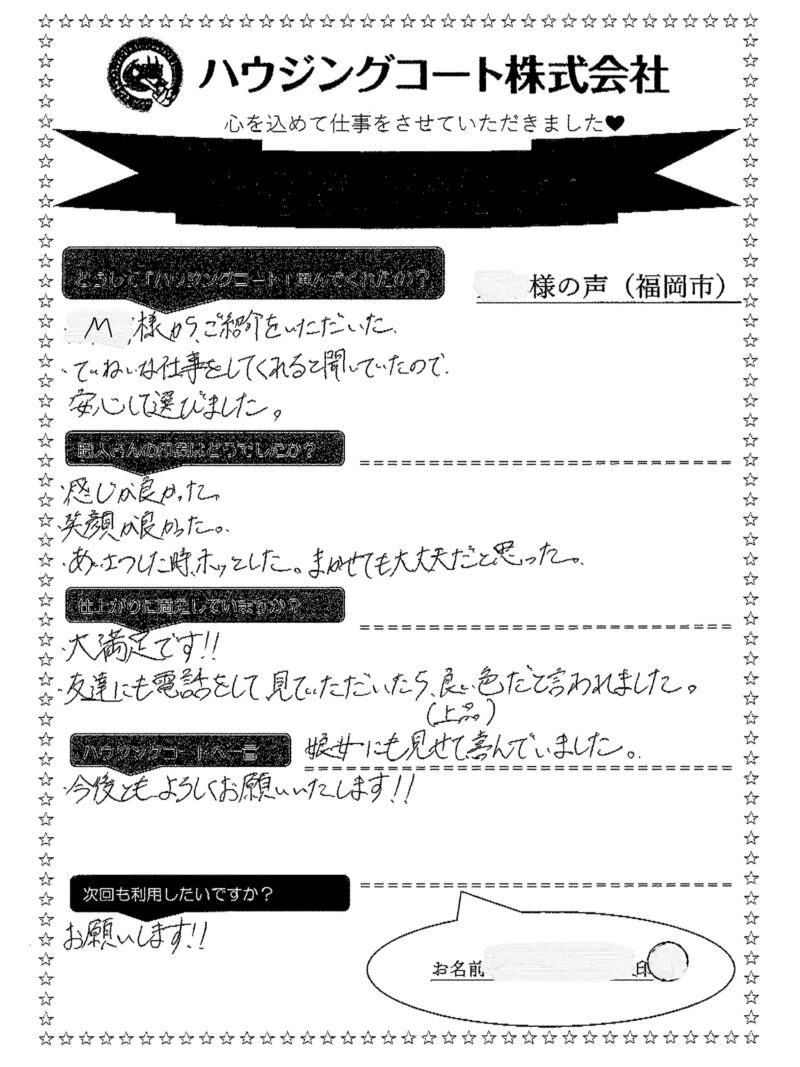 ハウジングコート株式会社
心を込めて仕事をさせていただきました♥
どうして「ハウジングコート」選んでくれたの?
様の声（福岡市）
・M 様から、ご紹介をいただいた。
・ていねいな仕事をしてくれると聞いていたので、
安心して選びました。
職人さんの印象はどうでしたか?
・感じが良かった。
・笑顔が良かった。
・あいさつした時、ホッとした。まかせても大丈夫だと思った。
仕上がりに満足していますか?
・大満足です!!
・友達にも電話をして、見ていただいたら、良い色だと言われました。
(上品)
ハウジングコートへ一言
娘女にも見せて喜んでいました。
・今後ともよろしくお願いいたします!!
次回も利用したいですか?
お願いします!!
お名前
印